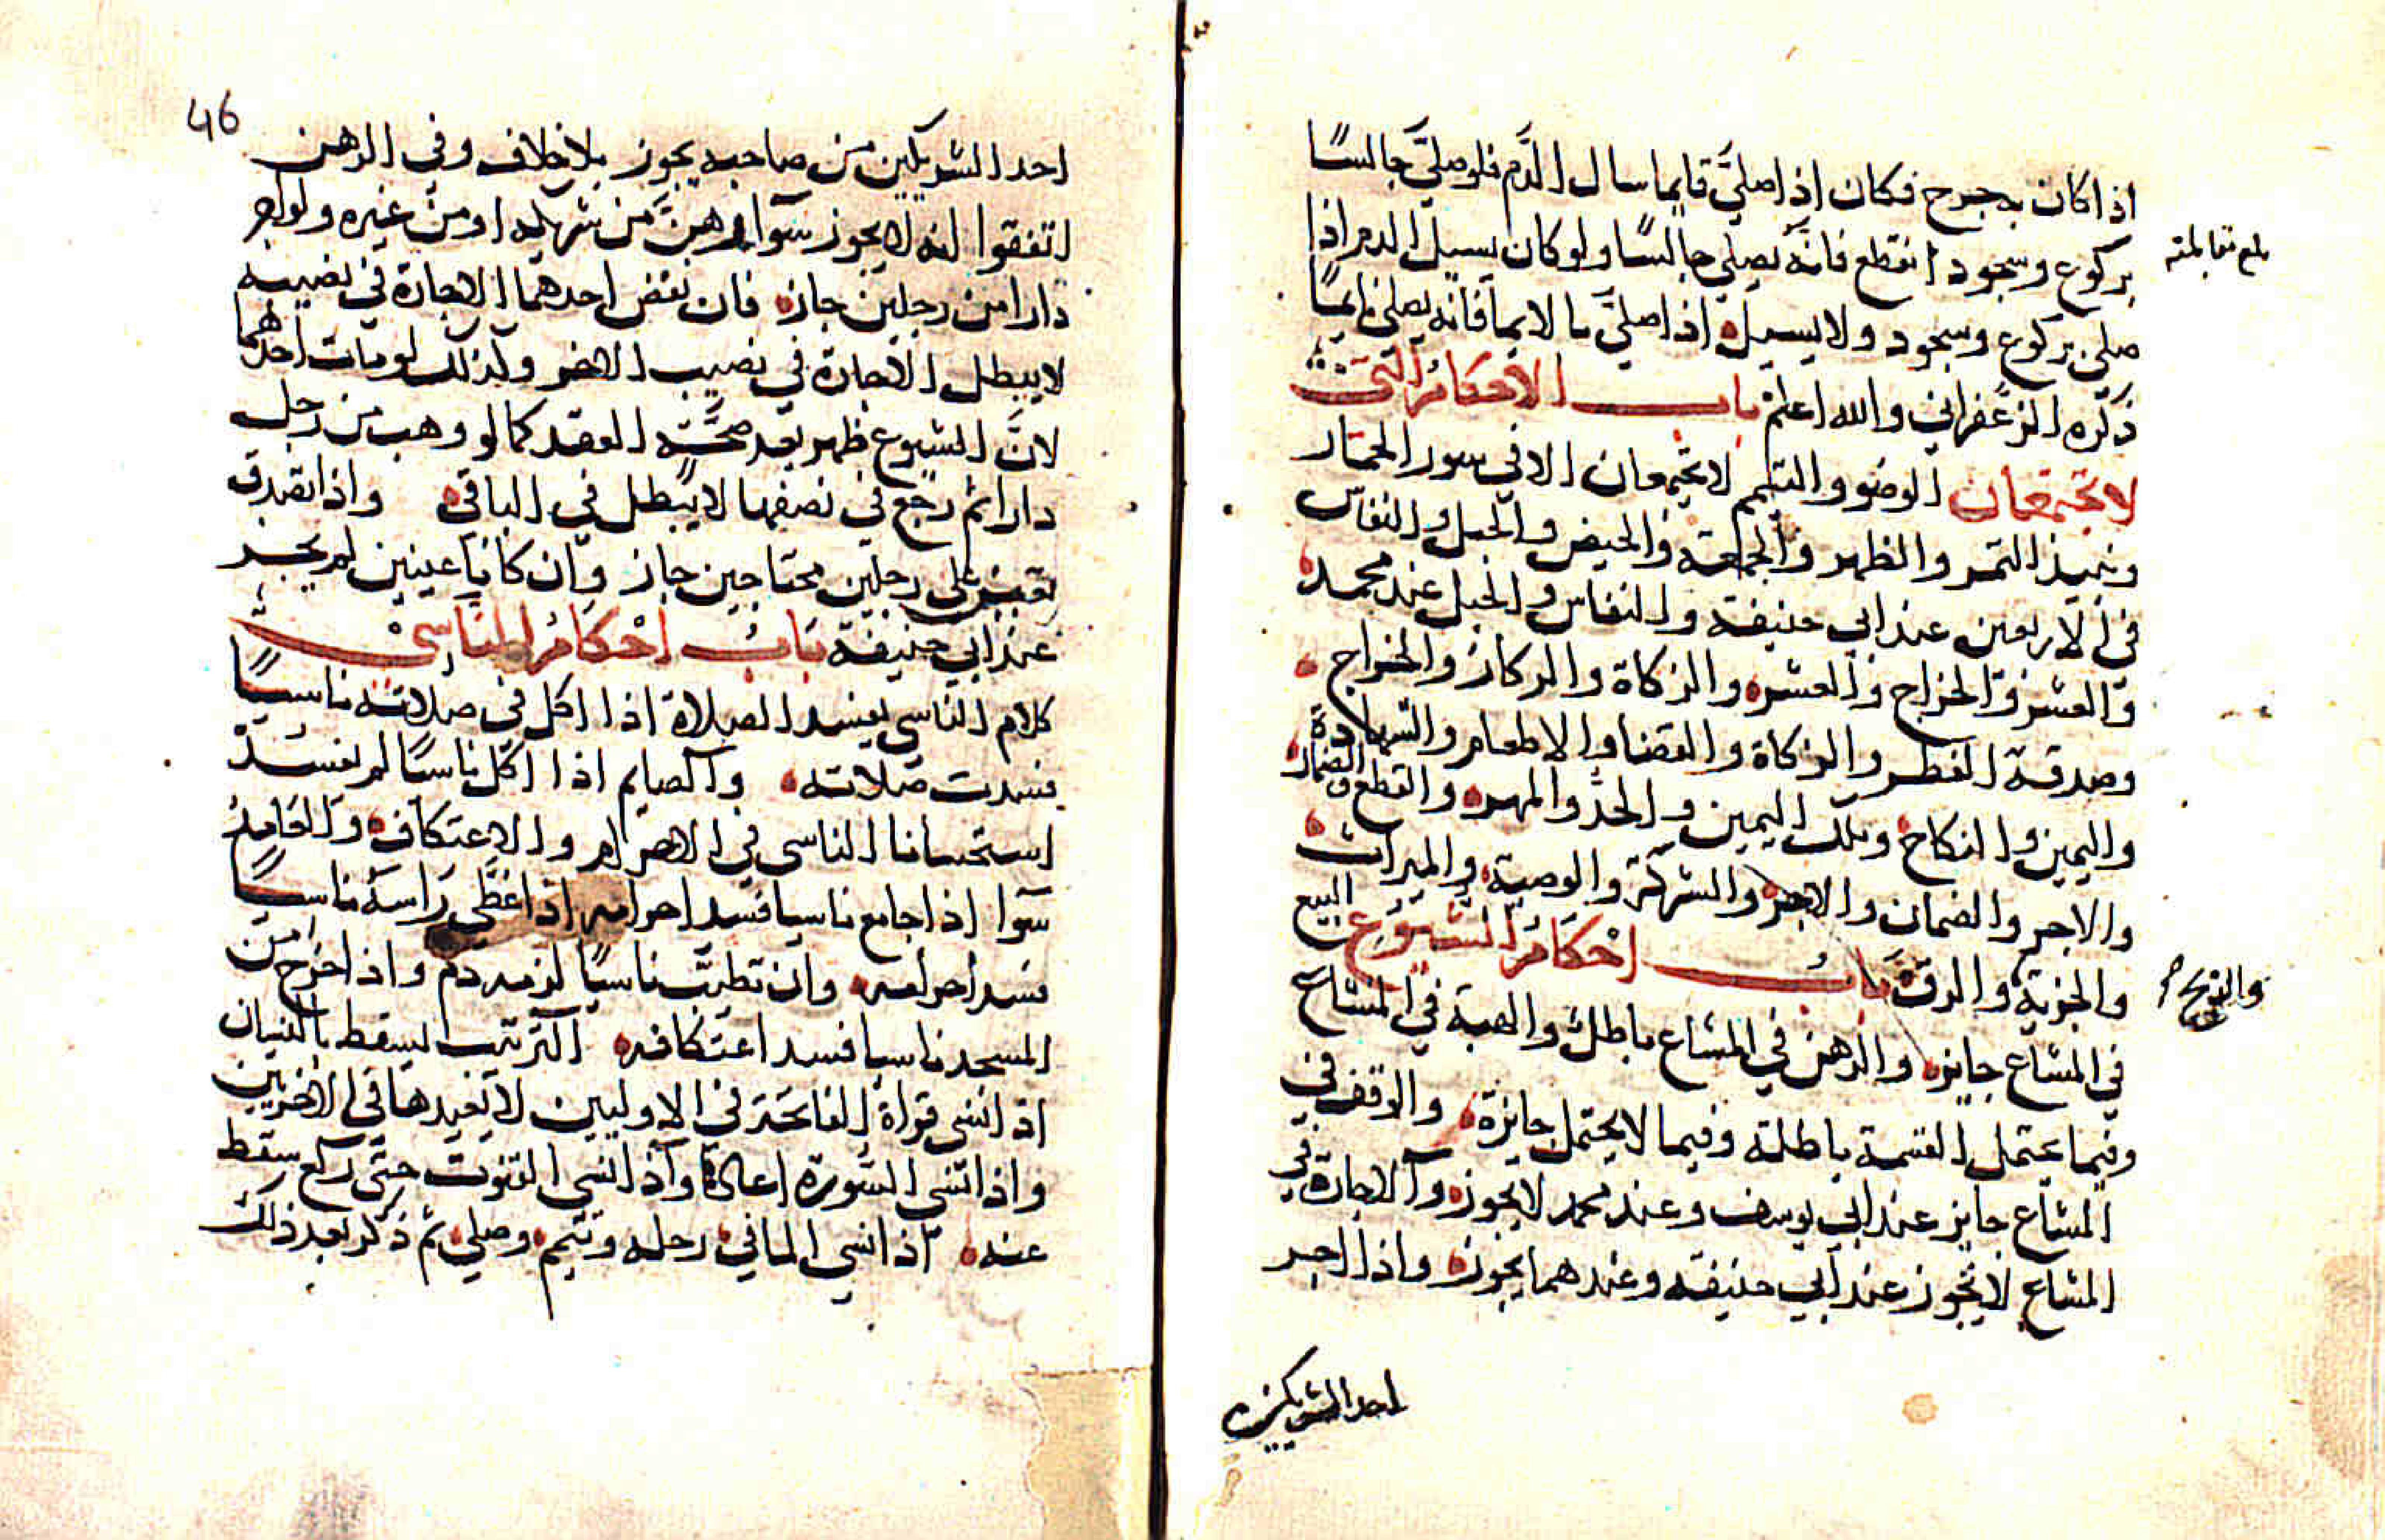 اذا كان به جرح فكان اذا صلى قايما سال الدم فلو صلى جالسًا
بركوع وسجود انقطع فانه يصلي جالسًا ولو كان يسيل الدم اذا
بلغ مقابلة
صلى بركوع وسجود ولا يسيل اذا صلى بالايما فانه يصلي بالايما
ذكره الزعفراني والله اعلم باب الاحكام التي
لا تجتمعان الوضو والتيمم لا يجتمعان الا في سور الحمار
ونبيذ التمر والظهر والجمعة والحيض والحبل والنفاس
في الاربعين عند ابي حنيفة والنفاس والحبل عند محمد
والعشر والخراج والعشر والزكاة والركاز والخراج
وصدقة الفطر والزكاة والقضا والاطعام والشهادة
واليمين والنكاح وملك اليمين والحد والمهر والقطع والضمان
والاجر والضمان والاجر والشركة والوصية والميراث
والجزية والرق باب احكام الشيوع البيع
في المشاع جايز والرهن في المشاع باطل والهبة في المشاع
وفيما يحتمل القسمة باطلة وفيما لا يحتمل جايزة والوقف في
المشاع جايز عند ابي يوسف وعند محمد لا يجوز والاجارة في
المشاع لا يجوز عند ابي حنيفة وعندهما يجوز واذا اجر
احد الشريكين
46
احد الشريكين من صاحبه يجوز بلا خلاف وفي الرهن
اتفقوا انه لا يجوز سوا رهن من شريكه او من غيره ولو اجر
دارا من رجلين جاز فان نقض احدهما الاجارة في نصيبه
لا يبطل الاجارة في نصيب الاخر وكذلك لو مات احدهما
لان الشيوع ظهر بعد صحة العقد كما لو وهب من رجل
دارا ثم رجع في نصفها لا يبطل في الباقي واذا تصدق
على رجلين محتاجين جاز وان كانا غنيين لم يجز
عند ابي حنيفة باب احكام الناسي
كلام الناسي يفسد الصلاة اذا اكل في صلاته ناسيًا
فسدت صلاته والصايم اذا اكل ناسيًا لم يفسد
استحسانا الناسي في الاحرام والاعتكاف والعامد
سوا اذا جامع ناسيا فسد احرامه اذا غطى راسه ناسيًا
فسد احرامه وان تطيب ناسيًا لزمه دم واذا خرج من
المسجد ناسيا فسد اعتكافه الترتيب يسقط بالنسيان
اذا نسي قراة الفاتحة في الاوليين لا يعيدها في الاخريين
واذا نسي السورة اعادها واذا نسي القنوت حتى ركع سقط
عنه اذا نسي الما في رحله وتيمم وصلي ثم ذكر بعد ذلك